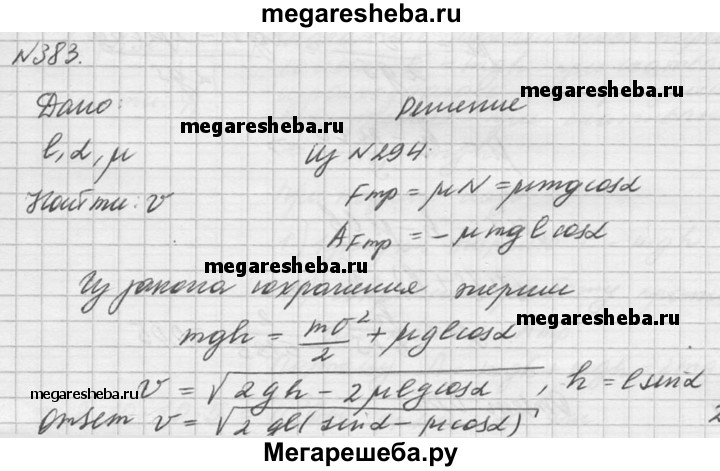 megaresheba.ru
№383.
Дано: Решение
megaresheba.ru
megaresheba.ru
l, α, μ Из №294:
Найти: v Fтр = μN = μmgcosα
megaresheba.ru
AFтр = -μmglcosα
megaresheba.ru
Из закона сохранения энергии
mgh = mv²/2 + μglcosα
megaresheba.ru
megaresheba.ru
v = √2gh - 2μlgcosα, h = lsinα
Ответ v = √2gl(sinα - μcosα)
Мегарешеба.ру